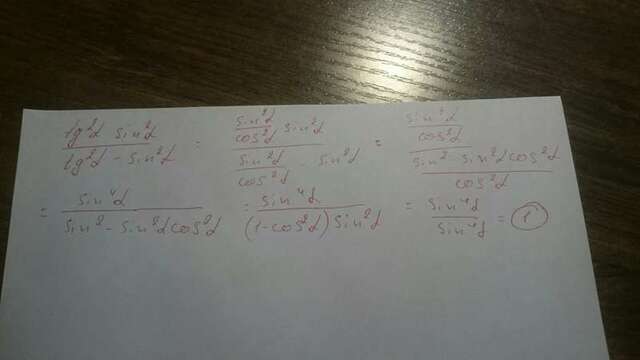 (tg²α sin²α)/(tg²α - sin²α) = ((sin²α/cos²α) sin²α)/((sin²α/cos²α) - sin²α) = (sin⁴α/cos²α)/((sin² - sin²α cos²α)/cos²α)
= sin⁴α/(sin² - sin²α cos²α) = sin⁴α/((1-cos²α) sin²α) = sin⁴α/sin⁴α = 1